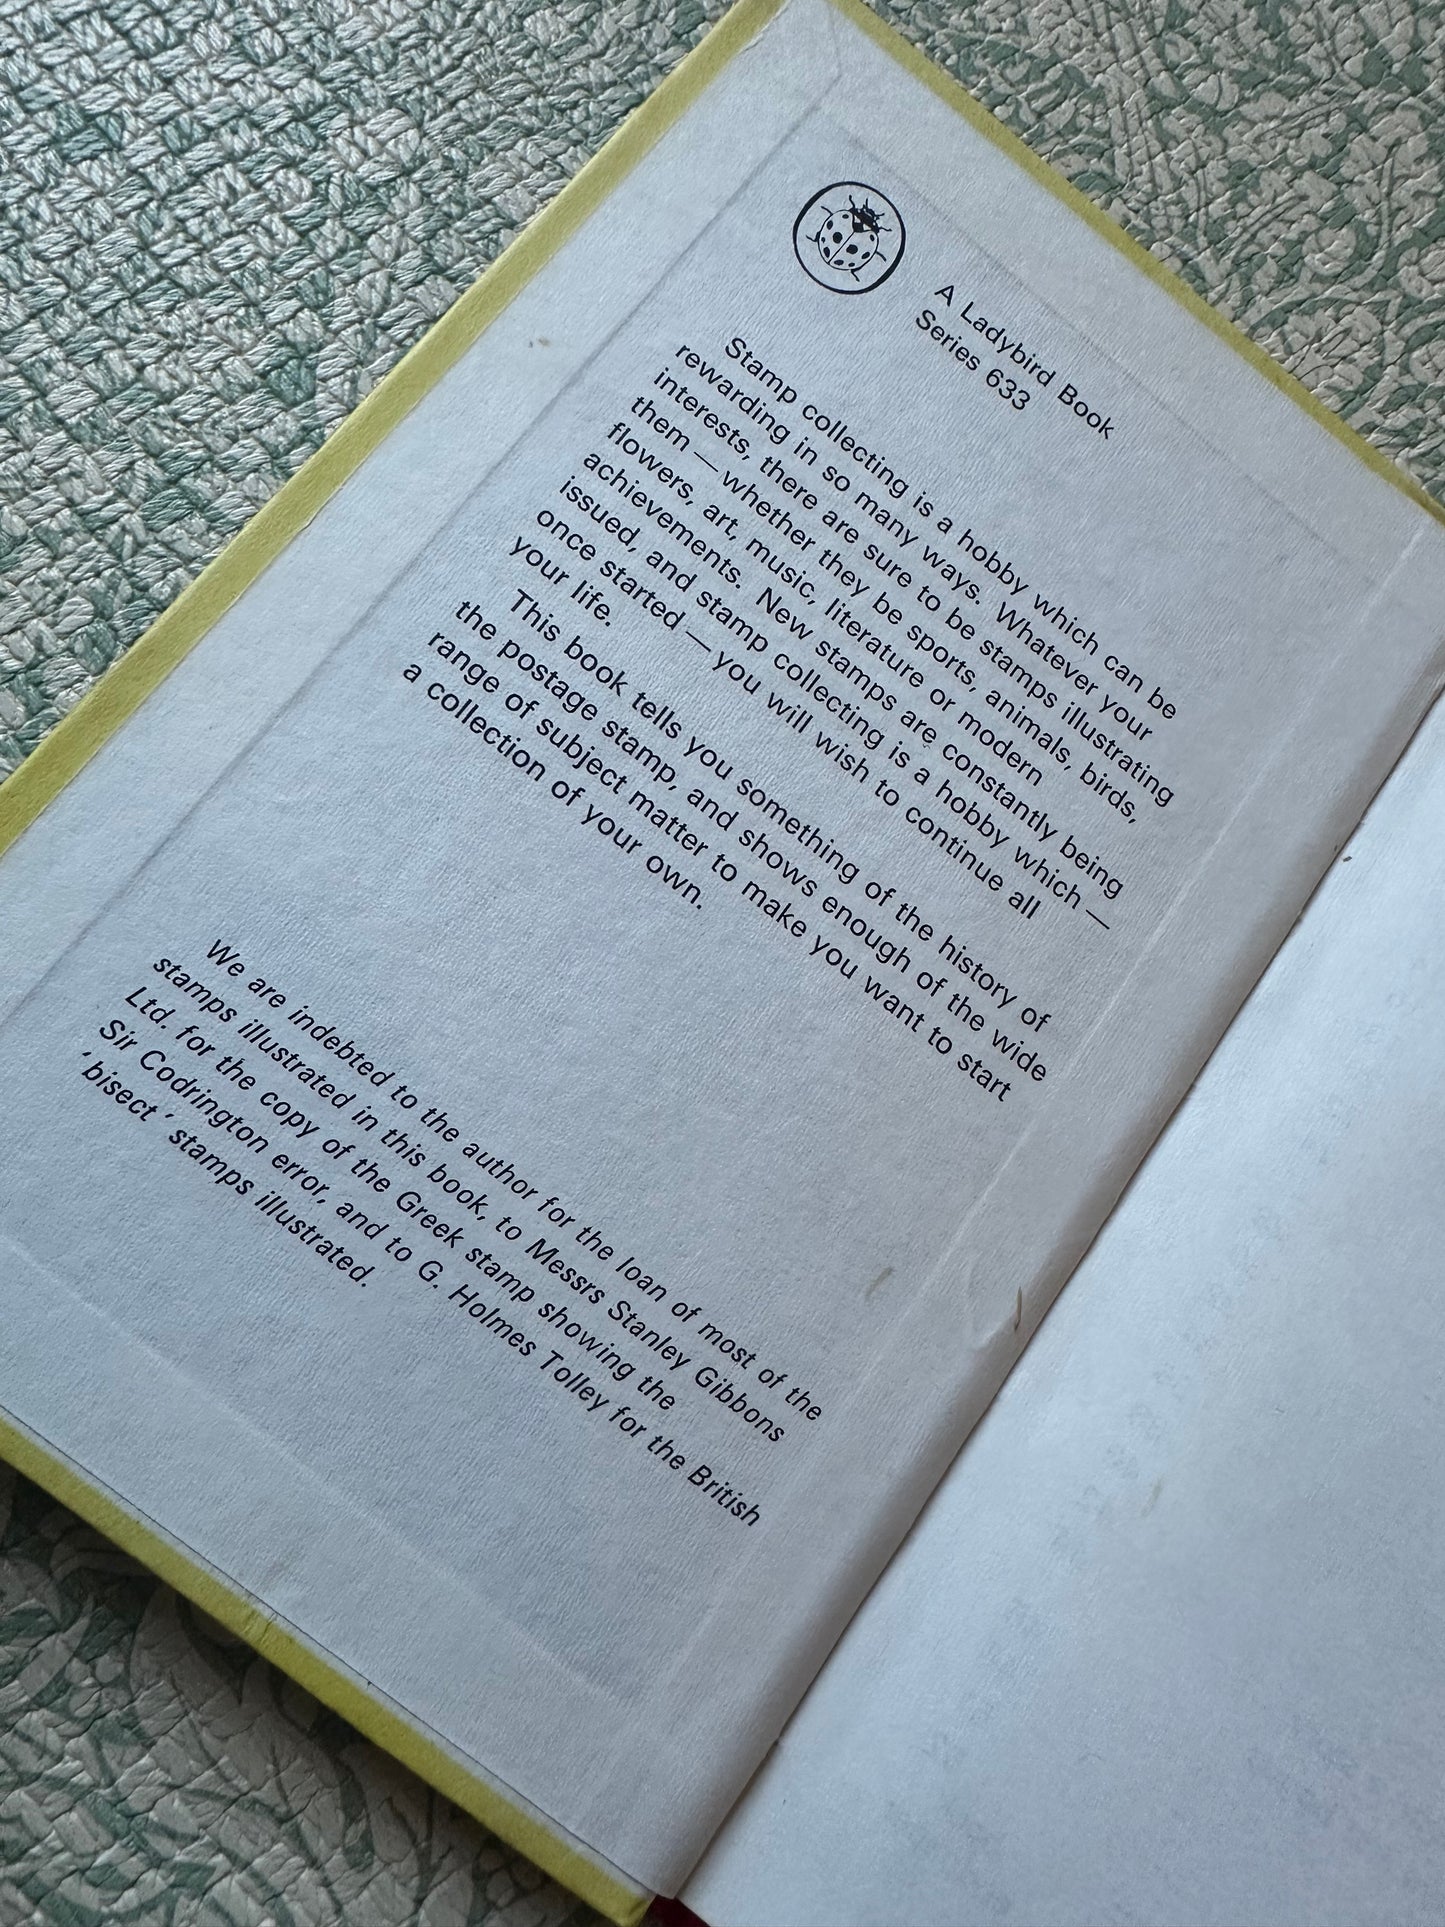 A Ladybird Book
Series 633
Stamp collecting is a hobby which can be
rewarding in so many ways. Whatever your
interests, there are sure to be stamps illustrating
them — whether they be sports, animals, birds,
flowers, art, music, literature or modern
achievements. New stamps are constantly being
issued, and stamp collecting is a hobby which —
once started — you will wish to continue all
your life.
This book tells you something of the history of
the postage stamp, and shows enough of the wide
range of subject matter to make you want to start
a collection of your own.
We are indebted to the author for the loan of most of the
stamps illustrated in this book, to Messrs Stanley Gibbons
Ltd. for the copy of the Greek stamp showing the
Sir Codrington error, and to G. Holmes Tolley for the British
'bisect' stamps illustrated.